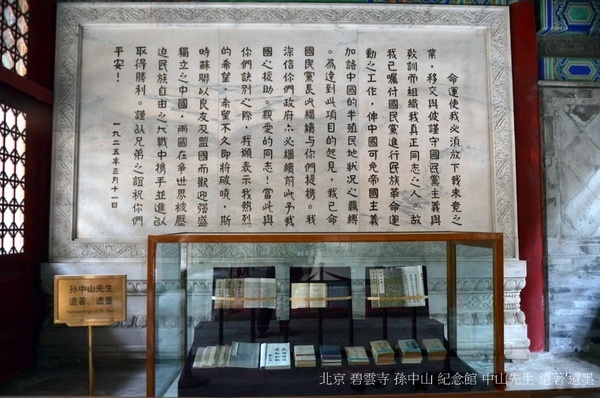 命運使我必須放下我未竟之
業，移交與彼謹守國民黨主義與
教訓而組織我真正同志之人。故
我已囑付國民黨進行民族革命運
動之工作，俾中國可免帝國主義
加諸中國的半殖民地狀況之羈縛
。為達到此項目的起見，我已命
國民黨長此繼續與你們提攜。我
深信你們政府亦必繼續前此予我
國之援助。親愛的同志！當此與
你們訣別之際，我願表示我熱烈
的希望，希望不久即將破曉，斯
時蘇聯以良友及盟國而歡迎強盛
獨立之中國，兩國在爭世界被壓
迫民族自由之大戰中攜手並進以
取得勝利。謹以兄弟之誼祝你們
平安！
一九二五年三月十一日
孙中山先生
遗著、遗墨
北京 碧雲寺 孫中山 紀念館 中山先生 遺著遺墨